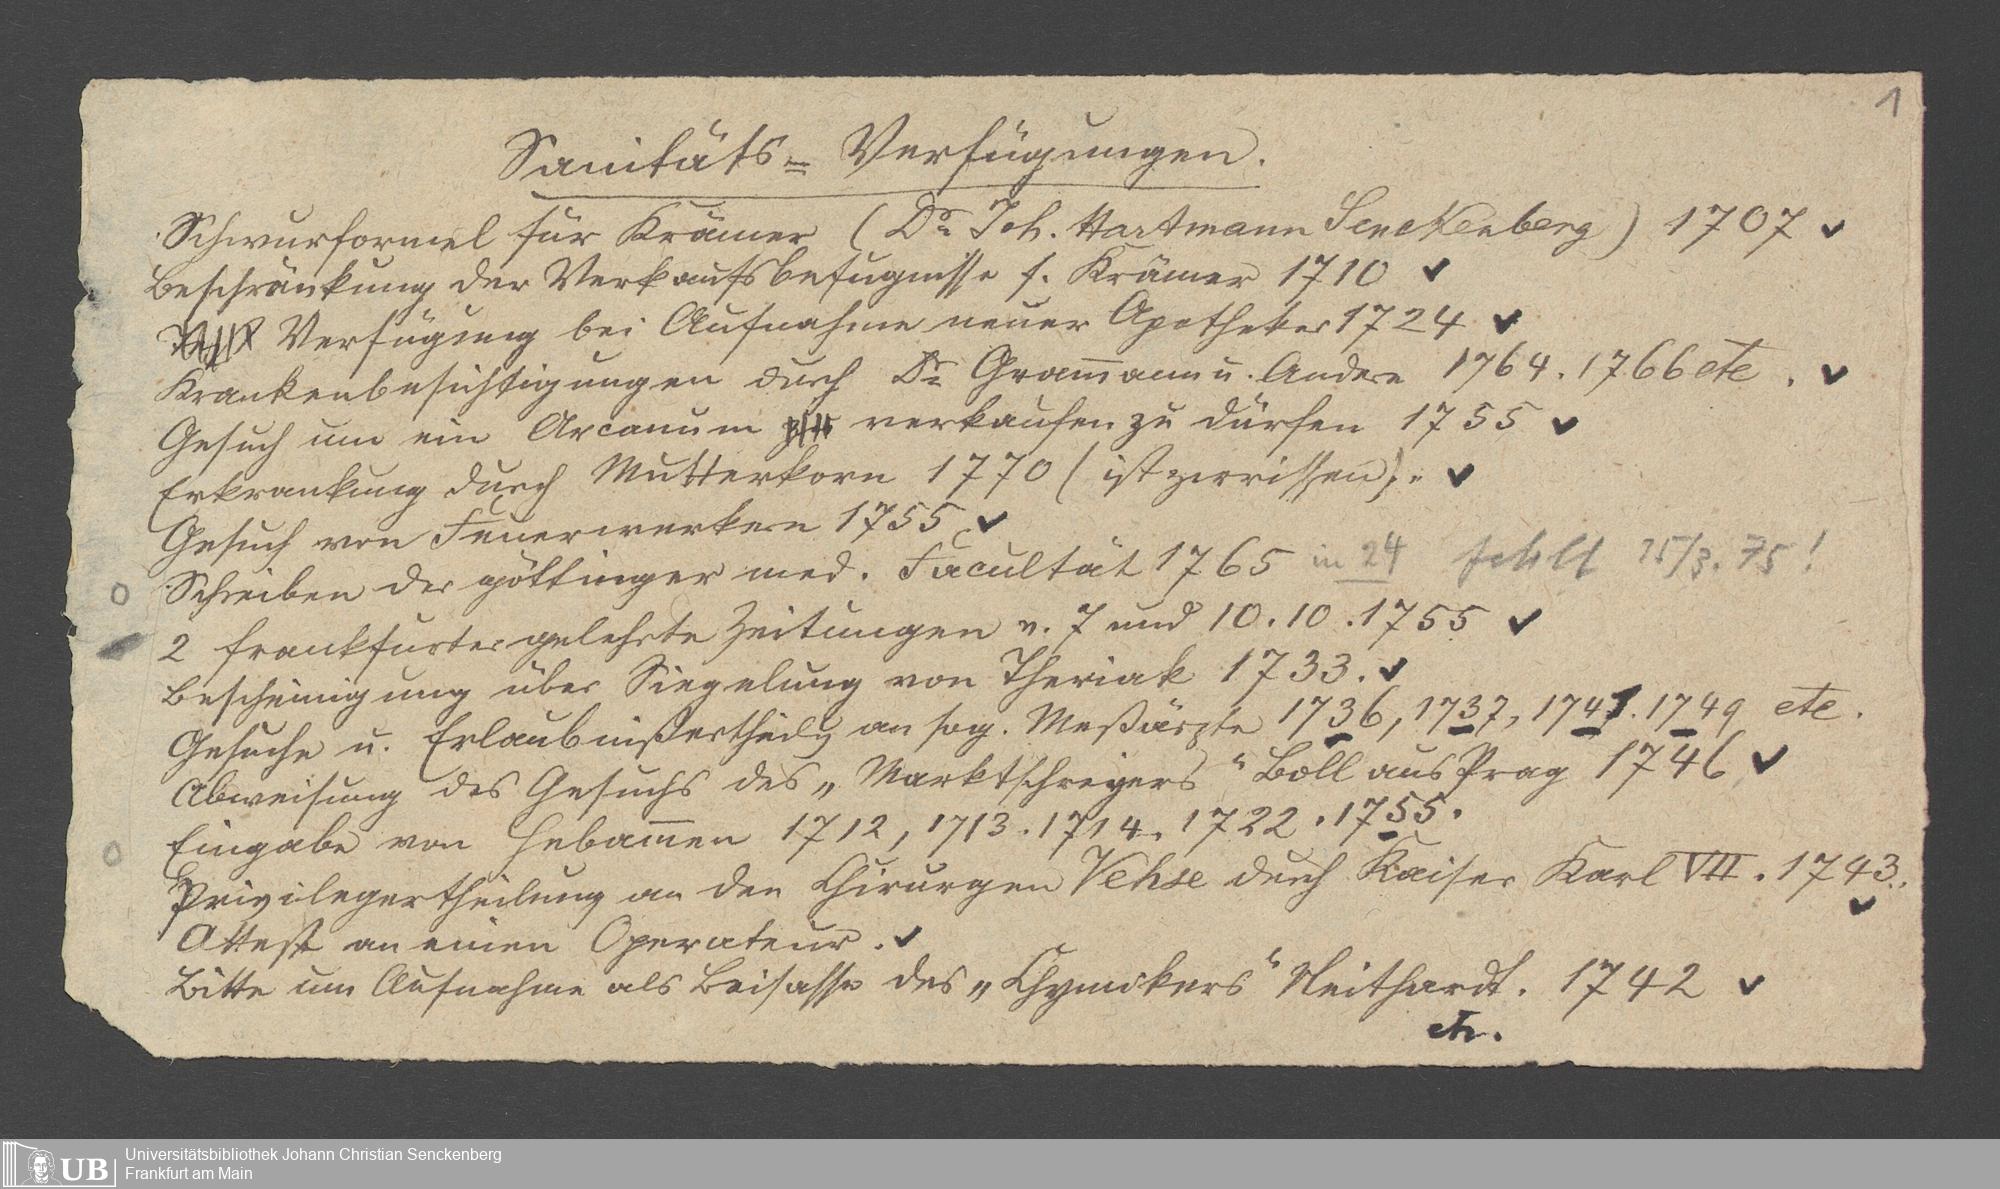 1
Sanitäts= Verfügungen.
Schwurformel für Krämer (Dr. Joh. Hartmann Senckenberg) 1707 ✓
Beschränkung der Verkaufsbefugnisse f. Krämer 1710 ✓
Verfügung bei Aufnahme neuer Apotheker 1724 ✓
Krankenbesichtigungen durch Dr. Gram̅ann u. Andere 1764. 1766 etc. ✓
Gesuch um ein Arcanum verkaufen zu dürfen 1755 ✓
Erkrankung durch Mutterkorn 1770 (ist zerrissen). ✓
Gesuch von Feuerwerkern 1755 ✓
Schreiben der göttinger med. Facultät 1765 in 24 fehlt 25/3. 75!
2 frankfurter gelehrte Zeitungen v. 7 und 10.10.1755 ✓
Bescheinigung über Siegelung von Theriak 1733. ✓
Gesuche u. Erlaubnißertheilg an sog. Meßärzte 1736, 1737, 1741. 1749 etc.
Abweisung des Gesuchs des „Marktschreyers“ Boll aus Prag 1746 ✓
Eingabe von Hebam̅en 1712, 1713. 1714. 1722. 1755.
Privilegertheilung an den Chirurgen Vehse durch Kaiser Karl VII. 1743. ✓
Attest an einen Operateur. ✓
Bitte um Aufnahme als Beisasse des „Chymikers“ Neithardt. 1742 ✓
etc.
UB
Universitätsbibliothek Johann Christian Senckenberg
Frankfurt am Main